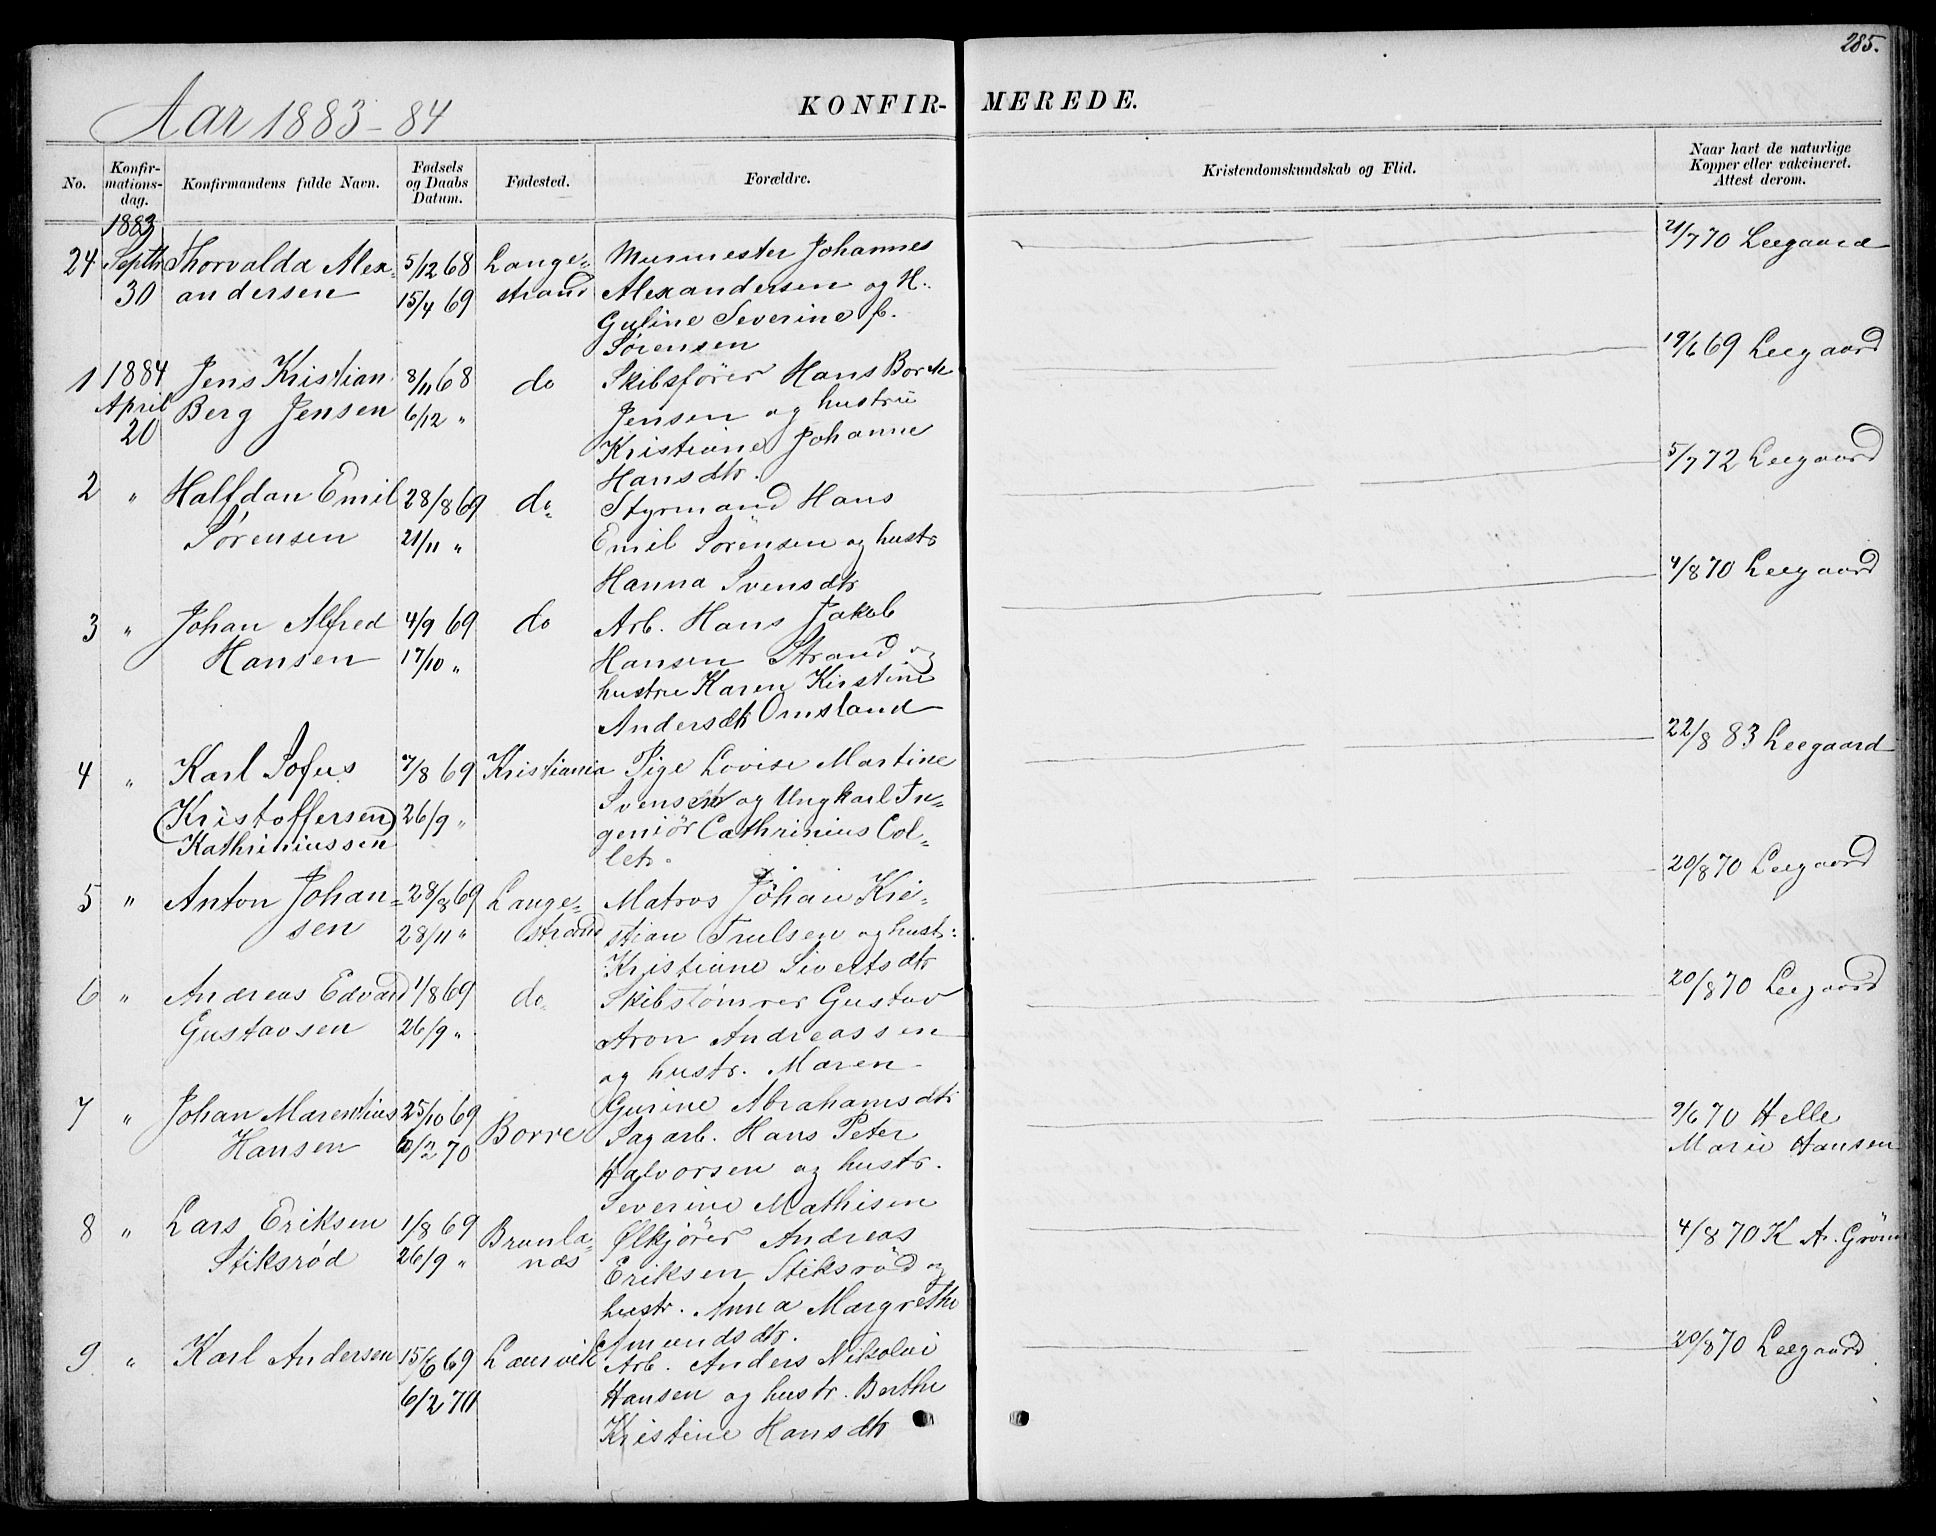 285.
Aar 1883-84
KONFIR- MEREDE.
No.
Konfir-
mations-
dag.
Konfirmandens fulde Navn.
Fødsels
og Daabs
Datum.
Fødested.
Forældre.
Kristendomskundskab og Flid.
Naar havt de naturlige
Kopper eller vakcineret.
Attest derom.
1883
24 Septbr Thorvalda Alex= 5/12 68 Lange= Murmester Johannes 21/7 70 Leegaard
30 andersen 15/4 69 strand Alexandersen og H.
Guline Severine f.
Sørensen
1 1884 Jens Kristian 8/11 68 do Skibsfører Hans Bork 19/6 69 Leegaard
April Berg Jensen 6/12 " Jensen og hustru
20 Kristiane Johanne
Hansdtr.
2 " Halfdan Emil 28/8 69 do Styrmand Hans 5/7 72 Leegaard
Sørensen 21/11 " Emil Sørensen og hustr
Hanna Svensdtr
3 " Johan Alfred 4/9 69 do Arb. Hans Jakob 4/8 70 Leegaard
Hansen 17/10 " Hansen Strand og
hustru Karen Kirstine
Andersdtr Omsland
4 " Karl Sofus 7/8 69 Kristiania Pige Lovise Martine 22/8 83 Leegaard
(Kristoffersen) 26/9 " Svensen og Ungkarl In=
Kathriniussen geniör Cathrinius Col=
let.
5 " Anton Johan= 28/8 69 Lange= Matros Johan Kri= 20/8 70 Leegaard
sen 28/11 " strand stian Trulsen og hustr:
Kristiane Sivertsdtr
6 " Andreas Edvard 1/8 69 do Skibstømrer Gustav 20/8 70 Leegaard
Gustavsen 26/9 " Aron Andreassen
og hustr. Maren
Gurine Abrahamsdtr
7 " Johan Marentius 25/10 69 Borre Sagarb. Hans Peter 9/6 70 Helle
Hansen 6/2 70 Halvorsen og hustr. Marie Hansen
Severine Mathisen
8 " Lars Eriksen 1/8 69 Brunla= Ølkjører Andreas 4/8 70 K A. Grönn
Stiksrød 26/9 " næs Eriksen Stiksröd og
hustr. Anna Margrethe
Amundsdtr.
9 " Karl Andersen 15/6 69 Laurvik Arb. Anders Nikolai 20/8 70 Leegaard
6/2 70 Hansen og hustr. Berthe
Kristine Hansdtr